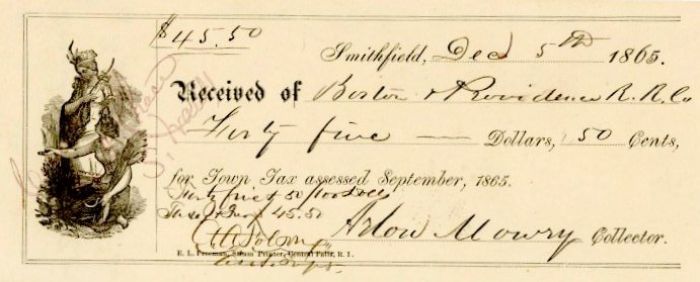 $45.50
Smithfield, Dec 5th 1865.
Received of Boston & Providence R. R. Co
Forty five — Dollars, 50 Cents,
for Town Tax assessed September, 1865.
Forty five & 50/100 Dolls
45.50
Arlon Mowry Collector.
E. L. Freeman, Steam Printer, Central Falls, R. I.